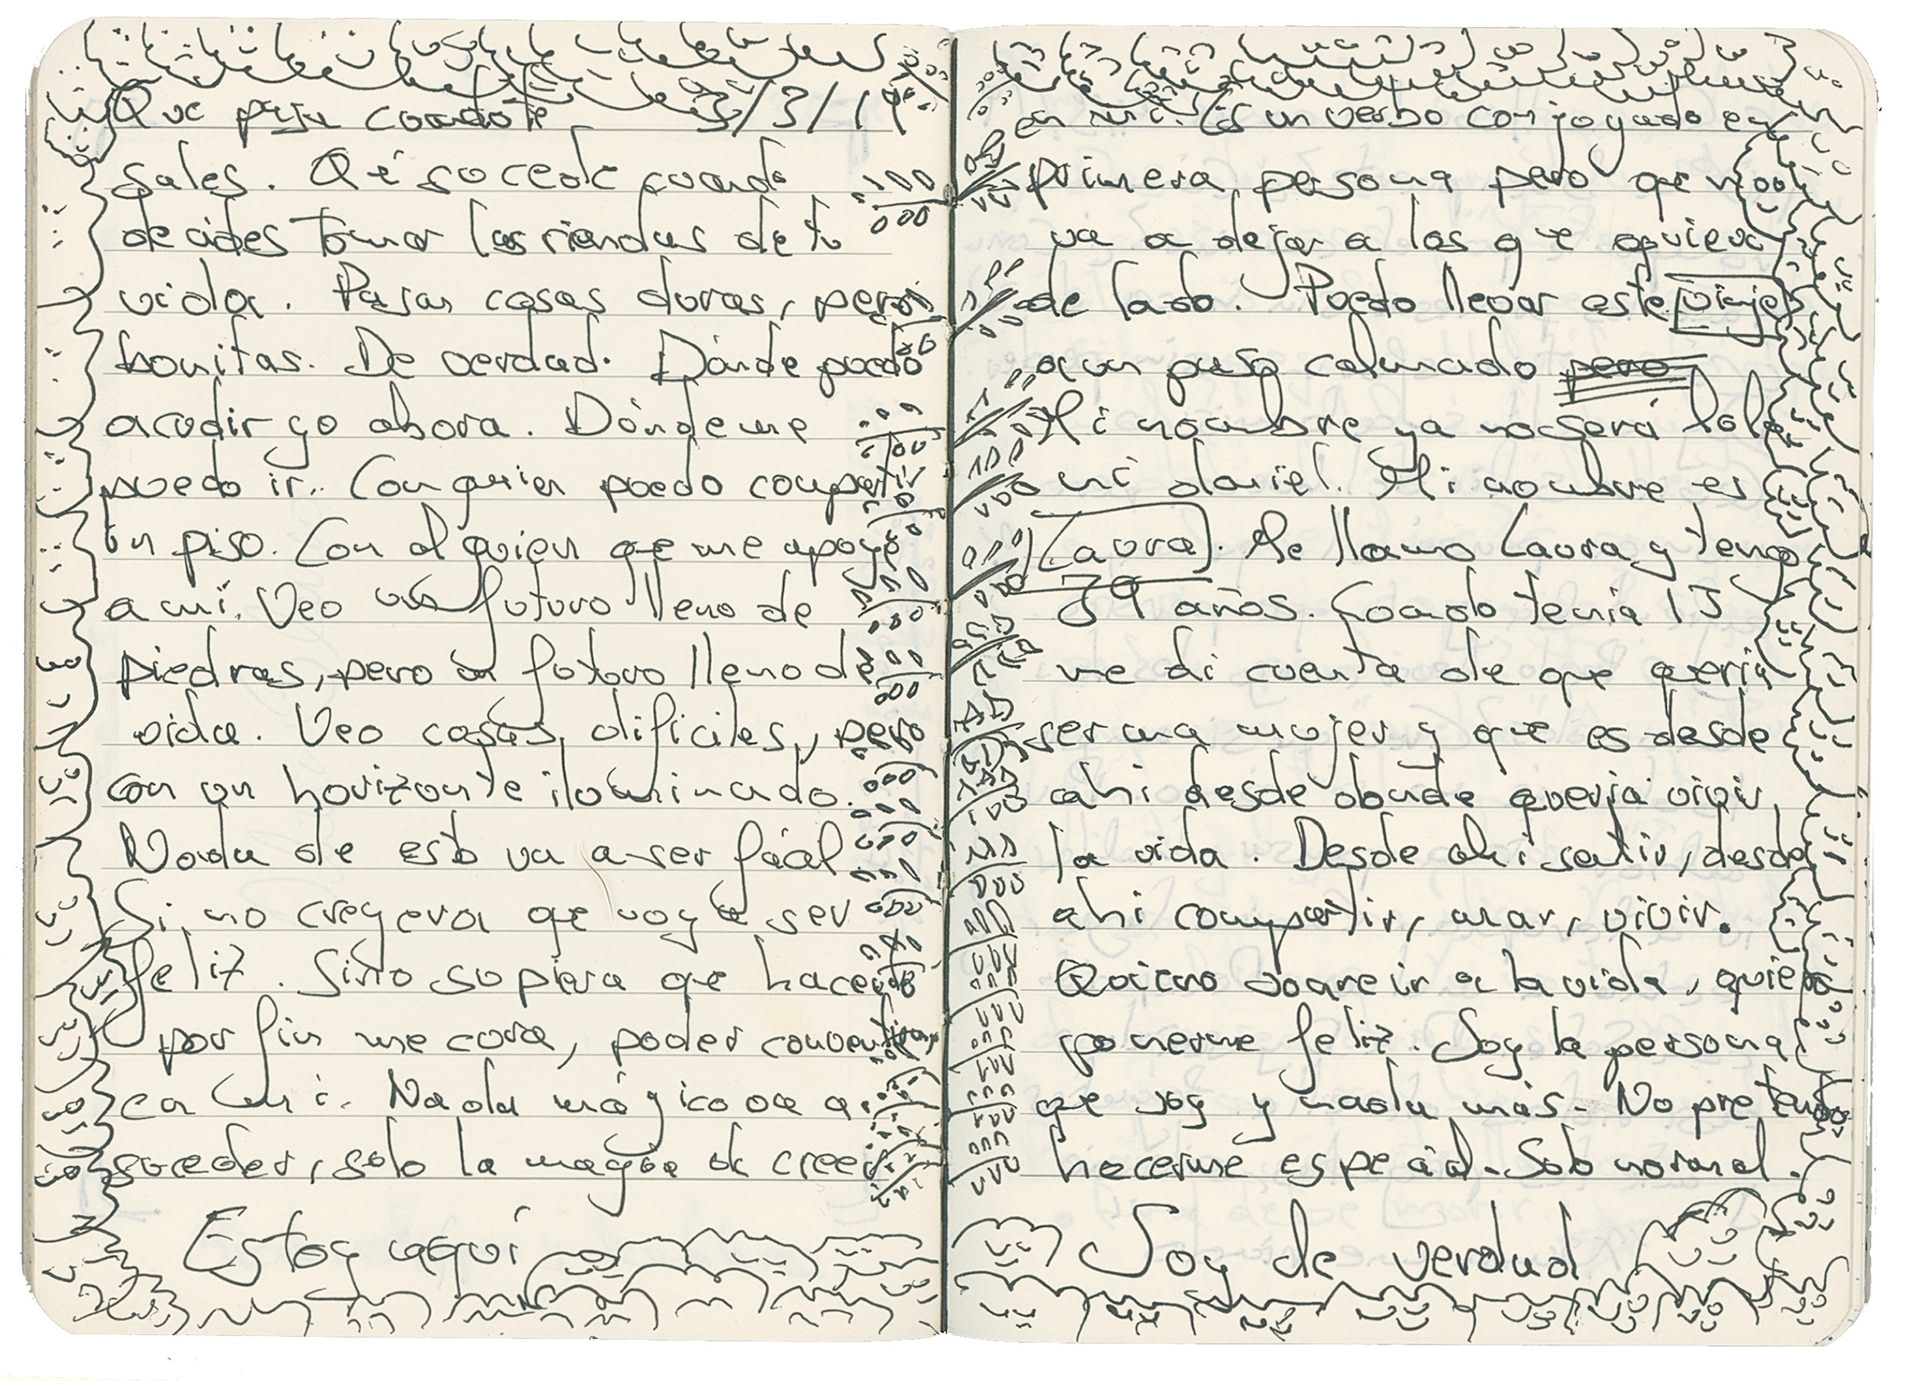 Que pasa cuando te 3/3/19
sales. Qé sucede cuando
decides tomar las riendas de tu
vida. Pasan cosas duras, pero
bonitas. De verdad. Dónde puedo
acudir yo ahora. Dónde me
puedo ir. Con quien puedo compartir
un piso. Con alguien que me apoye
a mí. Veo un futuro lleno de
piedras, pero un futuro lleno de
vida. Veo cosas dificiles, pero
con un horizonte iluminado.
Nada de esto va a ser fácil
Si no creyera que voy a ser
feliz. Si no supiera que hacerlo
por fin me cura, poder convertirme
en mí. Nada mágico va a
suceder, solo la magia de creer
Estoy aquí
en mí. Es un verbo conjugado en
primera persona pero que no
va a dejar a los que quiero
de lado. Puedo llevar este viaje
a un paso calmado pero
Mi nombre ya no será Lole
ni daniel. Mi nombre es
Laura. Me llamo Laura y tengo
39 años. Cuando tenía 13
me di cuenta de que quería
ser una mujer y que es desde
ahi desde donde quería vivir
la vida. Desde ahi sentir, desde
ahi compartir, amar, vivir.
Quiero sonreir a la vida, quiero
ponerme feliz. Soy la persona
que soy y nada más. No pretendo
hacerme especial. Solo normal.
Soy de verdad